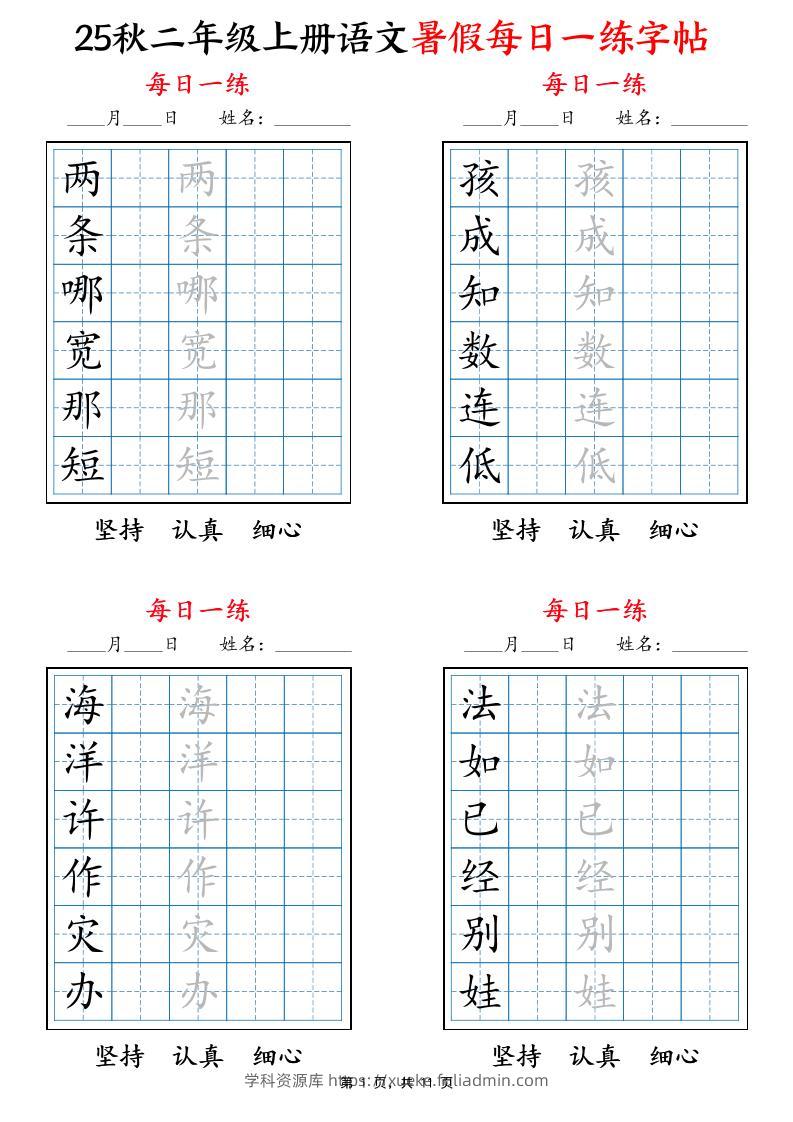 25秋二年级上册语文暑假每日一练字帖
每日一练
____月____日 姓名：________
两 两
条 条
哪 哪
宽 宽
那 那
短 短
坚持 认真 细心
每日一练
____月____日 姓名：________
孩 孩
成 成
知 知
数 数
连 连
低 低
坚持 认真 细心
每日一练
____月____日 姓名：________
海 海
洋 洋
许 许
作 作
灾 灾
办 办
坚持 认真 细心
每日一练
____月____日 姓名：________
法 法
如 如
已 已
经 经
别 别
娃 娃
坚持 认真 细心
学科资源库 https://xueke.fuliadmin.com
第 1 页，共 11 页